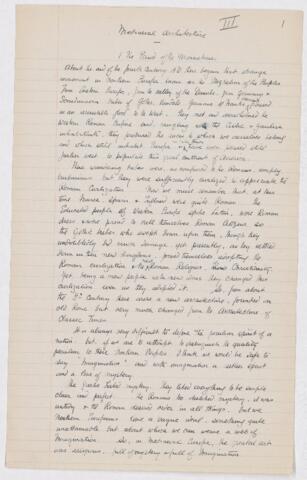 III
1
Mediaeval Architecture
1 The Period of the Monasteries.
About the end of the fourth century A.D. there began that strange
movement in Northern Europe known as the Migration of the Peoples
from Eastern Europe, from the valley of the Danube, from Germany &
Scandinavia tribes of Goths, Vandals, Germans & Franks, moved
in an irresistible flood to the West. They met and overwhelmed the
Western Roman Empire and mingling with the Celtic & Gaulish
inhabitants, they produced the races to which we ourselves belong
and which still inhabit Europe & have even passed still
further west to populate the great continent of America.
These wandering tribes were, as compared to the Romans, simply
barbarians but they were sufficiently intelligent to appreciate the
Roman Civilization. Now we must remember that, at this
time France, Spain & England were quite Roman. The
Educated people of Western Europe spoke Latin, wore Roman
dress & were proud to call themselves Roman citizens. So
the Gothic tribes who swept down upon them, though they
undoubtedly did much damage, yet presently, as they settled
down in their new kingdoms, found themselves adopting the
Roman civilization & the Roman Religion, Christianity.
Yet being a new people with new ideas they changed this
civilization even as they adopted it. So, from about
the 5th Century there arose a new architecture, founded on
old Rome but very much changed from the Architecture of
Classic Times.
It is always very difficult to define the peculiar spirit of a
nation. but if we are to attempt to distinguish the quality
peculiar to these Northern Peoples I think we would be safe to
say "Imagination" and with imagination a restless spirit
and a love of mystery.
The Greeks hated mystery. They liked everything to be simple
clear and perfect. The Romans too disliked mystery, it was
untidy & the Roman desired order in all things. But we
Northern Europeans love a vague ideal. something quite
unattainable but about which we can weave a web of
Imagination. So, in Mediaeval Europe, the greatest art
was religious. full of mystery & full of Imagination.